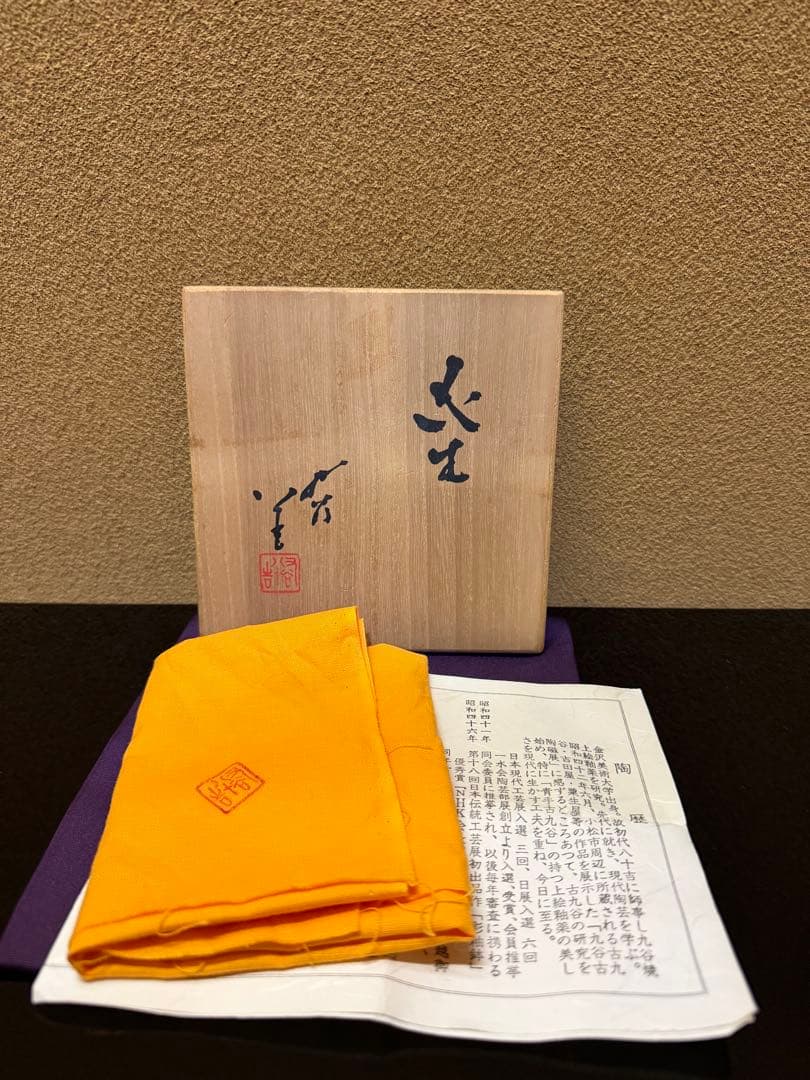 花生
九谷
陶歴
金沢美術大学出身。故初代八十吉に師事し九谷焼
上絵釉薬を研究。先代に就き、現代陶芸を学ぶ。
昭和四十二年六月、小松市周辺に所蔵される古九
谷・吉田屋・粟生屋等の作品を展示した「九谷古
陶磁展」に感ずるところあつて、古九谷の研究を
始め、特に「青手古九谷」の持つ上絵釉薬の美し
さを現代に生かす工夫を重ね、今日に至る。
日本現代工芸展入選 三回、日展入選 六回
一水会陶芸部展創立より入選、受賞、会員推挙
昭和四十一年 同会委員に推挙され、以後毎年審査に携わる
昭和四十六年 第十八回日本伝統工芸展初出品作「彩釉鉢」
優秀賞「NHK会